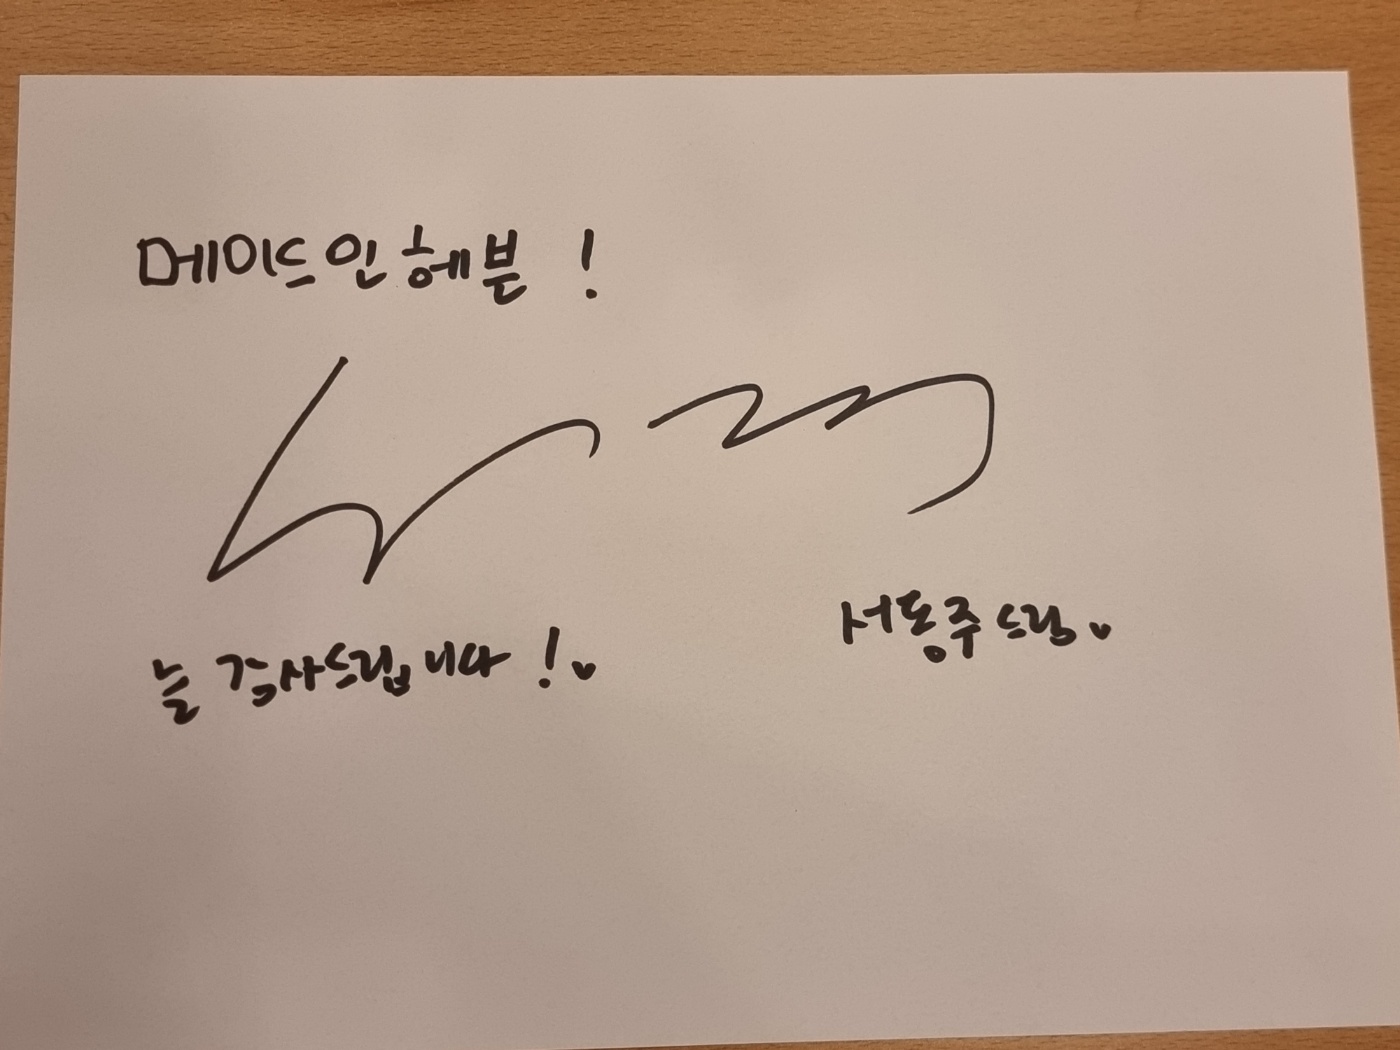 메이드인헤븐!
늘 감사드립니다!♥
서동주 드림♥